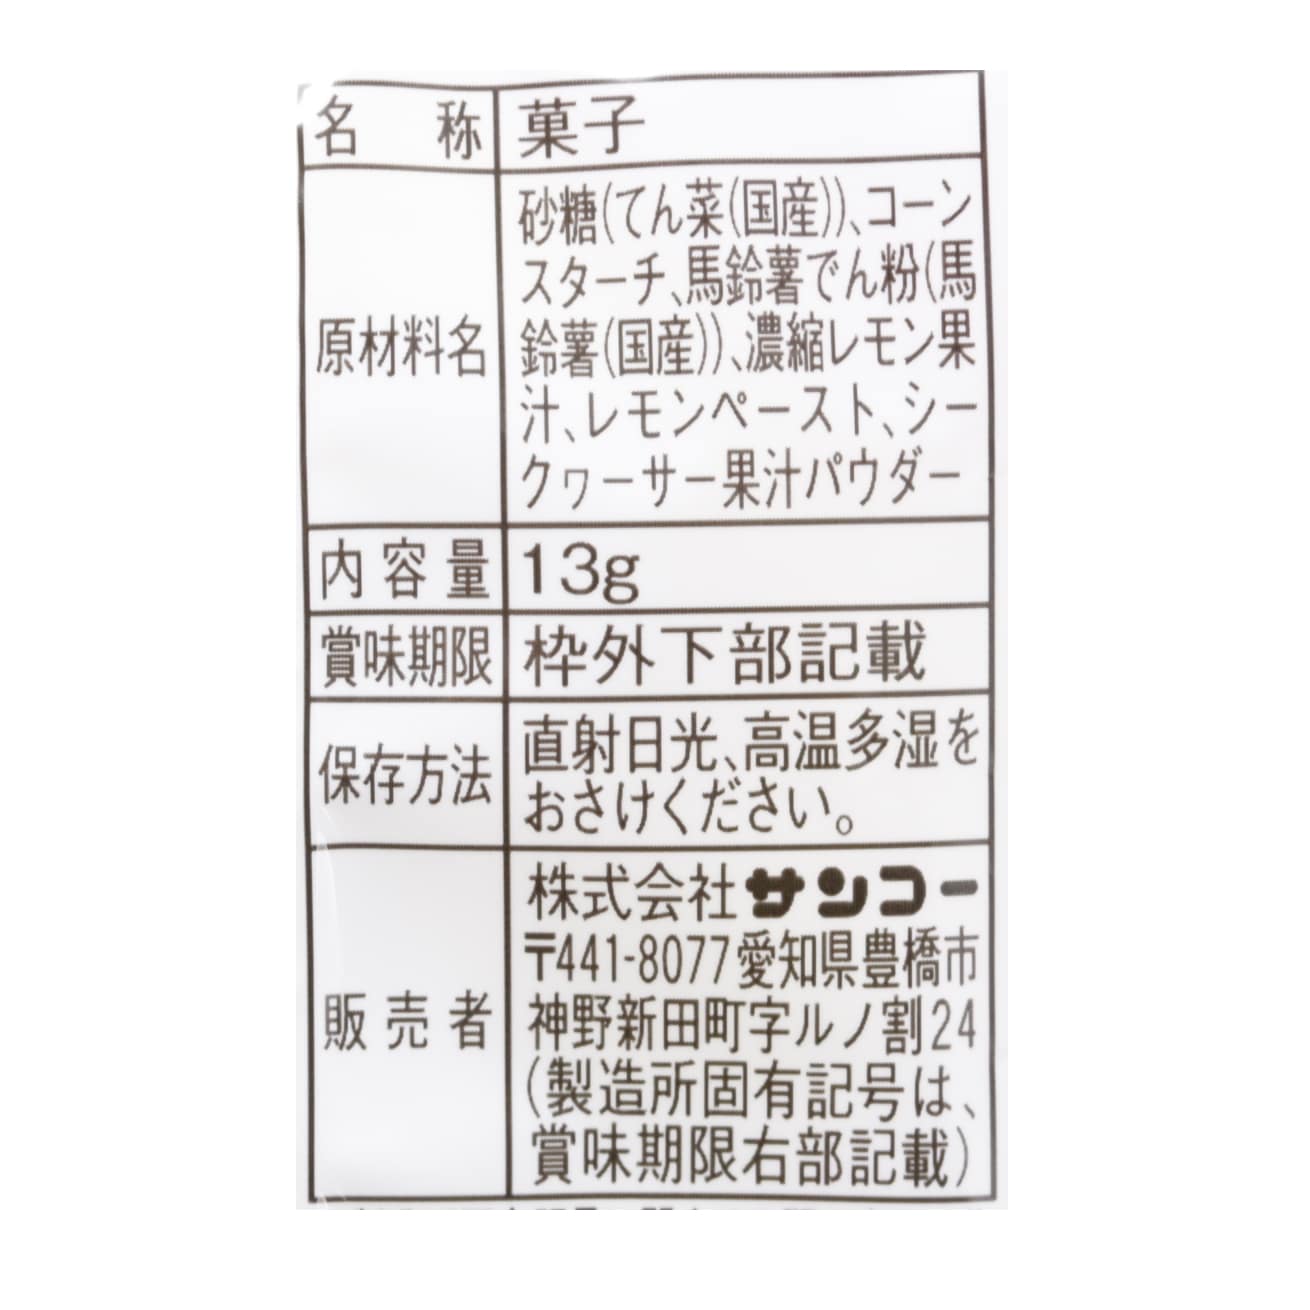 名称 菓子
原材料名 砂糖(てん菜(国産))、コーン
スターチ、馬鈴薯でん粉(馬
鈴薯(国産))、濃縮レモン果
汁、レモンペースト、シー
クヮーサー果汁パウダー
内容量 13g
賞味期限 枠外下部記載
保存方法 直射日光、高温多湿を
おさけください。
販売者 株式会社サンコー
〒441-8077愛知県豊橋市
神野新田町字ルノ割24
(製造所固有記号は、
賞味期限右部記載)